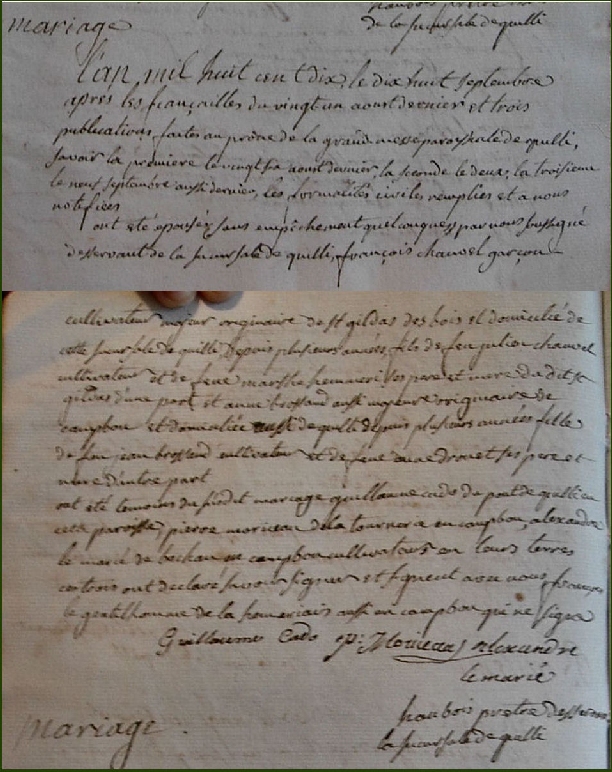 mariage
de la succursale de quilli
L'an mil huit cent dix, le dix huit septembre
après les fiançailles du vingt un aoust dernier et trois
publications faites au prône de la grand messe paroissiale de quilli,
savoir la premiere le vingt six aoust dernier, la seconde le deux, la troisieme
le neuf septembre aussi dernier, les formalités civiles remplies et a nous
notifiées
ont été épousés sans empêchement quelconques par nous soussigné
desservant de la succursale de quilli, françois chauvel garçon
cultivateur majeur originaire de St gildas des bois et domicilié de
cette succursale de quilli depuis plusieurs années, fils de feu julien chauvel
cultivateur et de feue marthe hemueri ses pere et mere du dit St
gildas d'une part et anne brossaud aussi majeure originaire de
campbon et domiciliée aussi de quilli depuis plusieurs années fille
de feu jean brossaud cultivateur et de feue anne drouet ses pere et
mere d'autre part
ont été temoins du susdit mariage guillaume cado du pont de quilli en
cette paroisse, pierre moriceau de la tournerie en campbon, alexandre
le marié de bechan en campbon cultivateurs en leurs terres
ont declaré savoir signer et signent avec nous, françois
le gentilhomme de la aussi en campbon qui ne signe
Guillaume Cado p: Moriceau alexandre
le marié
haubois pretre desserv.
la succursale de quilli
mariage